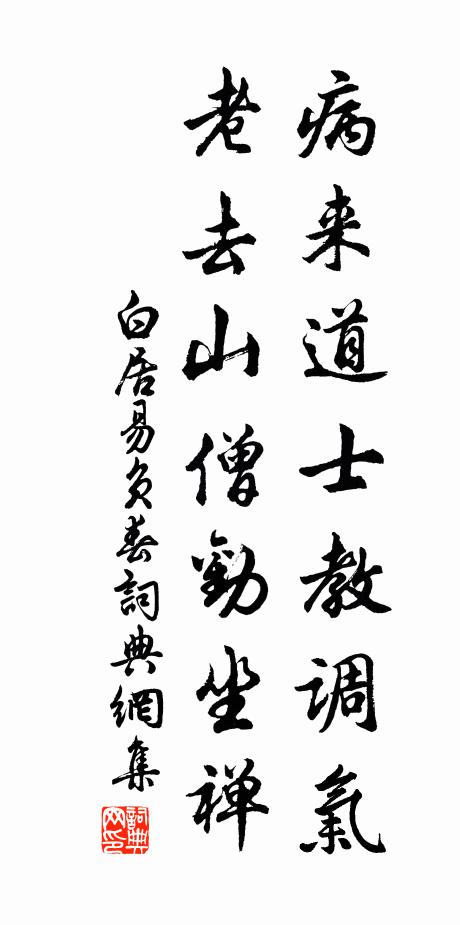 病来道士教調氣
老去山僧勸坐禅
白居易負春詞典網集
詞典網印